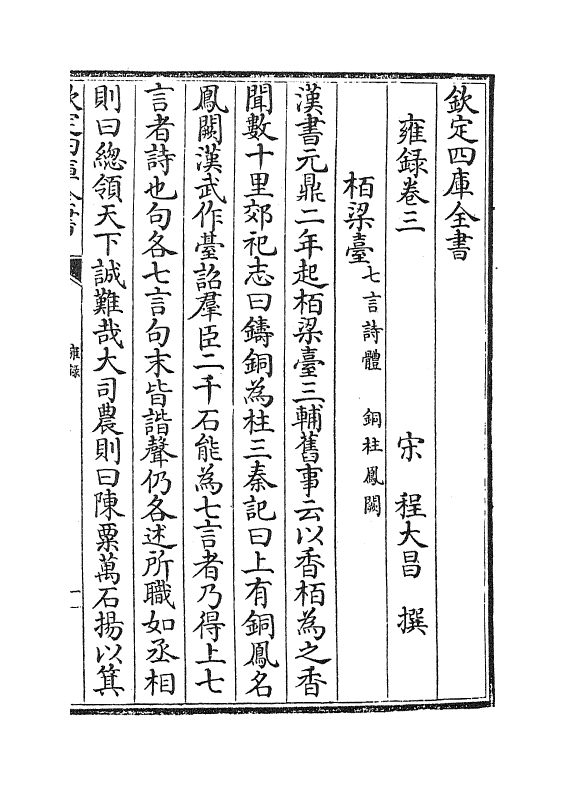 欽定四庫全書
雍録卷三
宋　程大昌　撰
栢梁臺七言詩體　銅柱鳳闕
漢書元鼎二年起栢梁臺三輔舊事云以香栢為之香
聞數十里郊祀志曰鑄銅為柱三秦記曰上有銅鳳名
鳳闕漢武作臺詔羣臣二千石能為七言者乃得上七
言者詩也句各七言句末皆諧聲仍各述所職如丞相
則曰總領天下誠難哉大司農則曰陳粟萬石揚以箕
欽定四庫全書
雍録
一